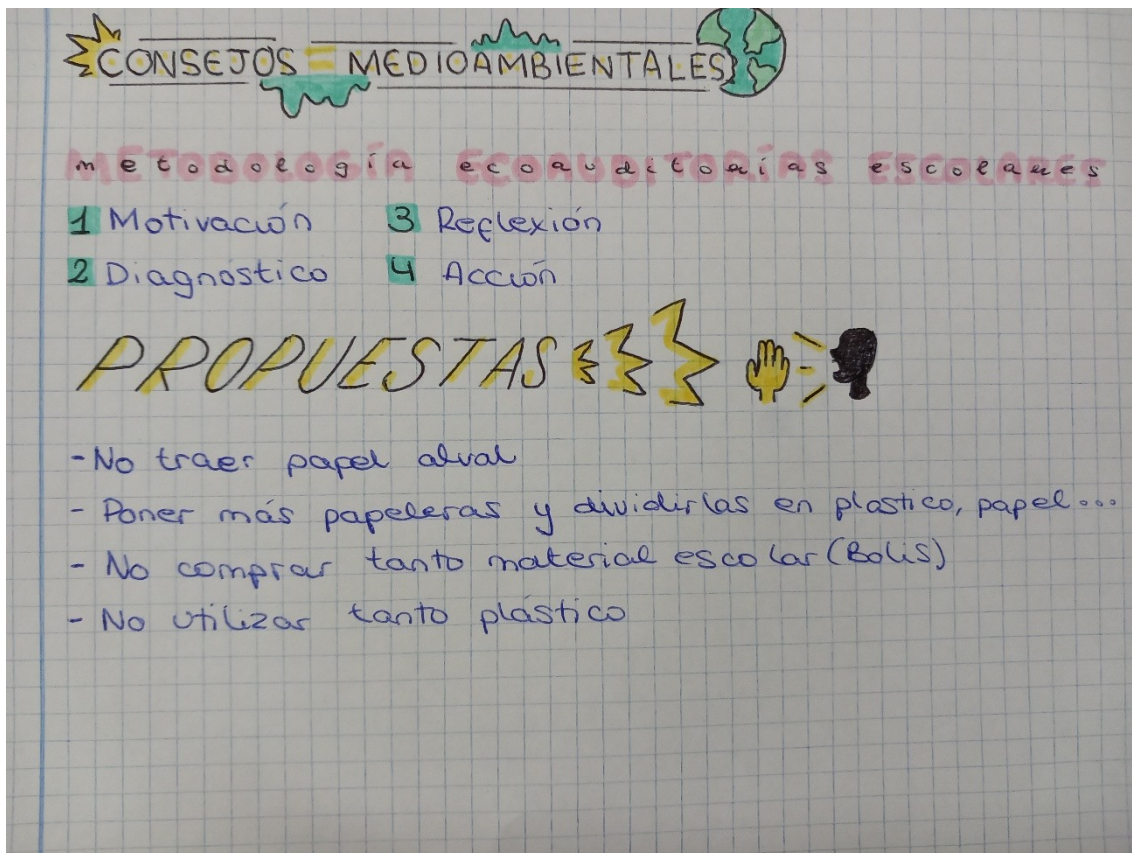 CONSEJOS = MEDIOAMBIENTALES
metodología ecoauditorías escolares
1 Motivación 3 Reflexión
2 Diagnóstico 4 Acción
PROPUESTAS
- No traer papel alval
- Poner más papeleras y dividirlas en plastico, papel...
- No comprar tanto material escolar (Bolis)
- No utilizar tanto plástico